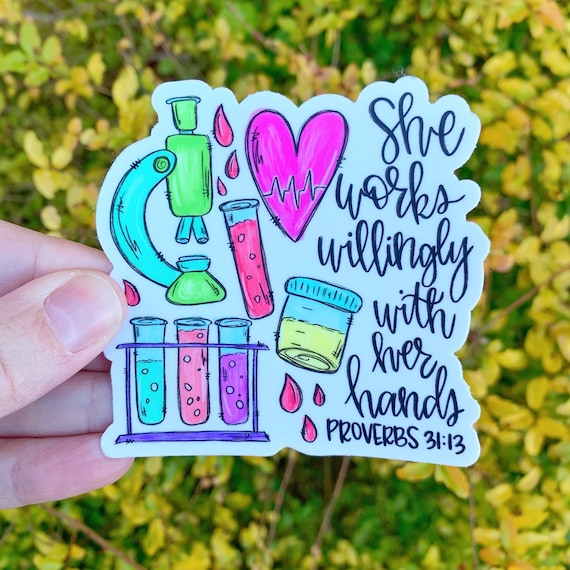 She
works
willingly
with
her
hands
PROVERBS 31:13